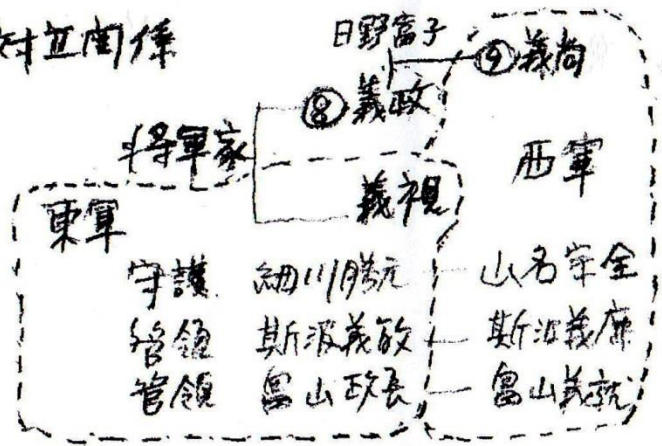 対立関係
日野富子 ⑨義尚
⑧義政
将軍家
義視
西軍
東軍
守護 細川勝元 山名宗全
管領 斯波義敏 斯波義廉
管領 畠山政長 畠山義就